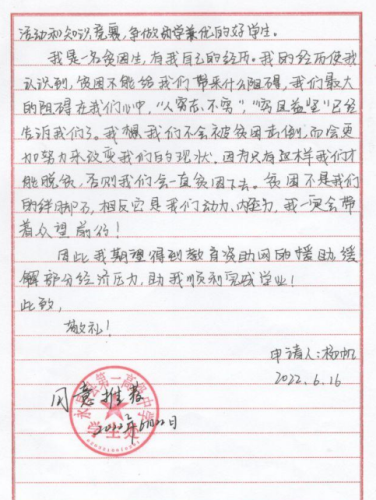 活动和知识竞赛，争做品学兼优的好学生。
我是一名贫困生，有我自己的经历。我的经历使我
认识到，贫困不能给我们带来什么阻碍，我们最大
的阻碍在我们心中，“人穷志不穷”，“穷且益坚”已经
告诉我们了。我想我们不会被贫困击倒，而会更
加努力来改变我们的现状，因为只有这样我们才
能脱贫，否则我们会一直贫困下去。贫困不是我们
的绊脚石，相反它是我们动力、内在力，我一定会带
着众望前行！
因此我期望得到教育资助网的援助缓
解部分经济压力，助我顺利完成学业！
此致，
敬礼！
申请人：杨帆
2022.6.16
同意推荐
第一高级中学
学生处
2022年6月22日